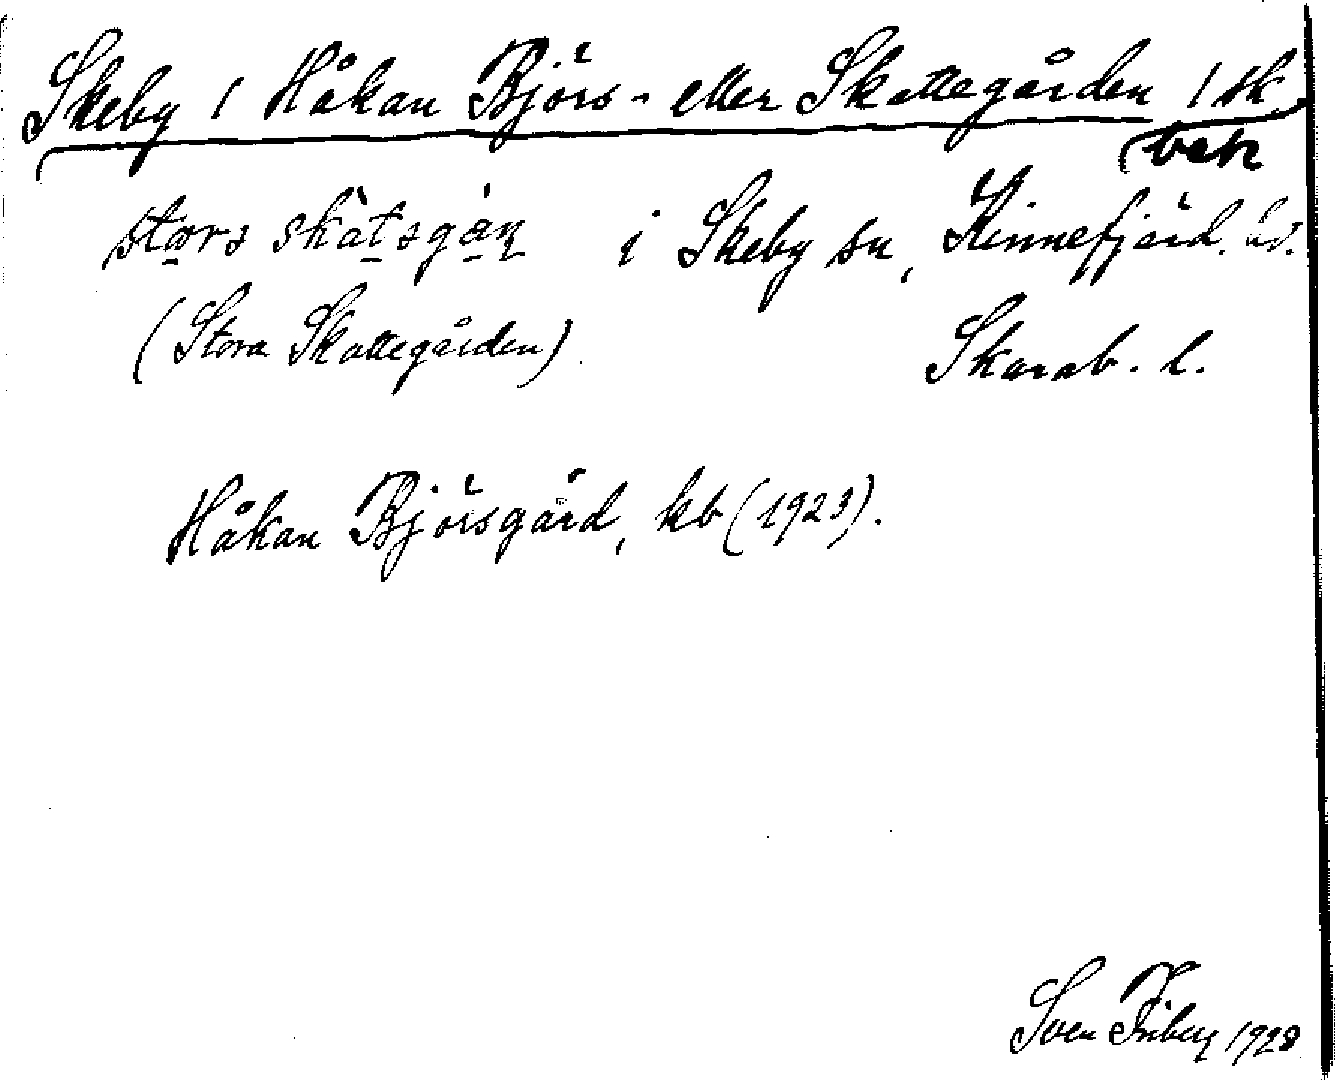 Skeby / Håkan Björs- eller Skattegården / sk
beb
i Skeby sn, Kinnefjärd. hd.
(Stora Skattegården) Skarab. l.
Håkan Björsgård, kb (1923).
Sven Friberg 1928